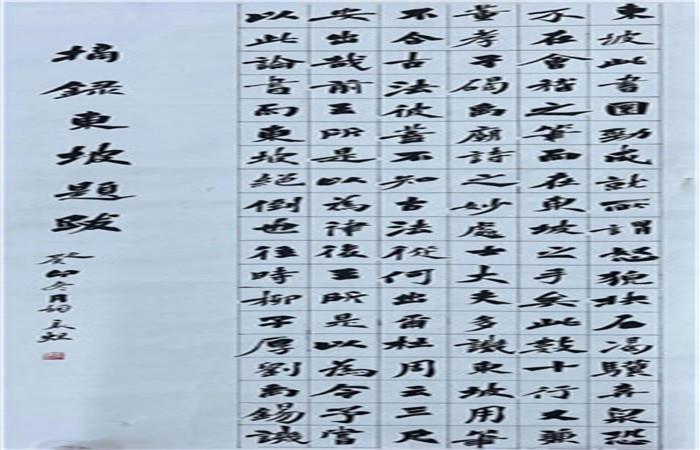 東坡此書圓勁成就所謂怒猊抉石渴驥奔泉恐
不在會稽之筆而在東坡之手矣此數十行又兼
董孝子碣禹廟詩之妙處士大夫多譏東坡用筆
不合古法彼蓋不知古法從何出爾杜周云三尺
安出哉前王所是以為律後王所是以為令予嘗
以此論書而東坡絕倒也往時柳子厚劉禹錫譏
摘錄東坡題跋
癸卯冬月